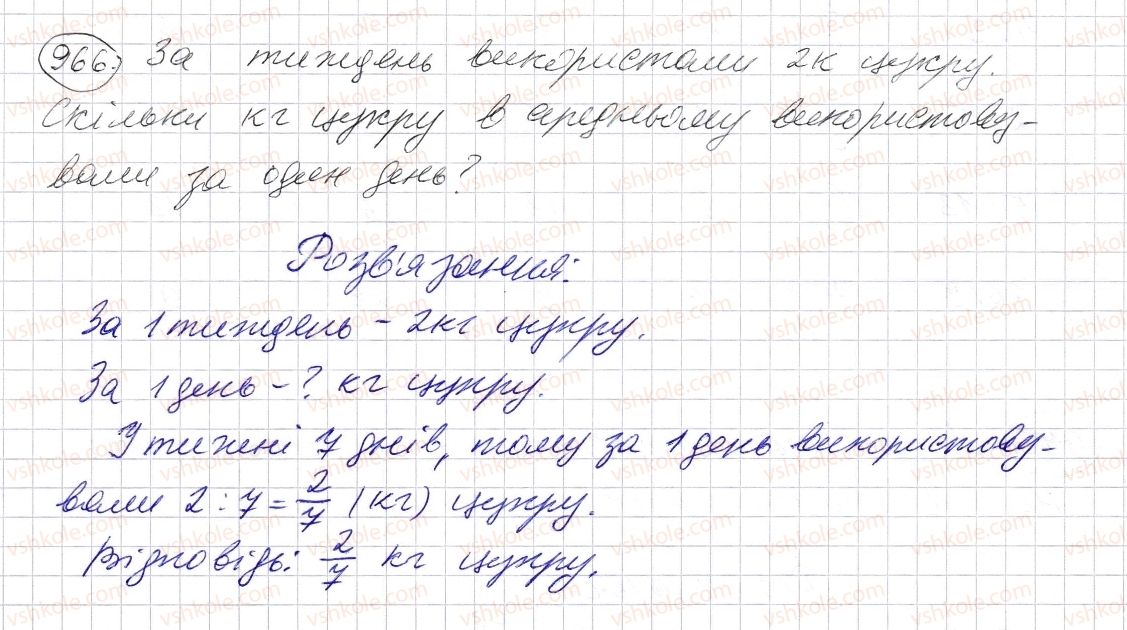 966. За тиждень використали 2к цукру.
Скільки кг цукру в середньому використову-
вали за один день?
Розв'язання:
За 1 тиждень - 2кг цукру.
За 1 день - ? кг цукру.
У тижні 7 днів, тому за 1 день використову-
вали 2 : 7 = 2/7 (кг) цукру.
Відповідь: 2/7 кг цукру.